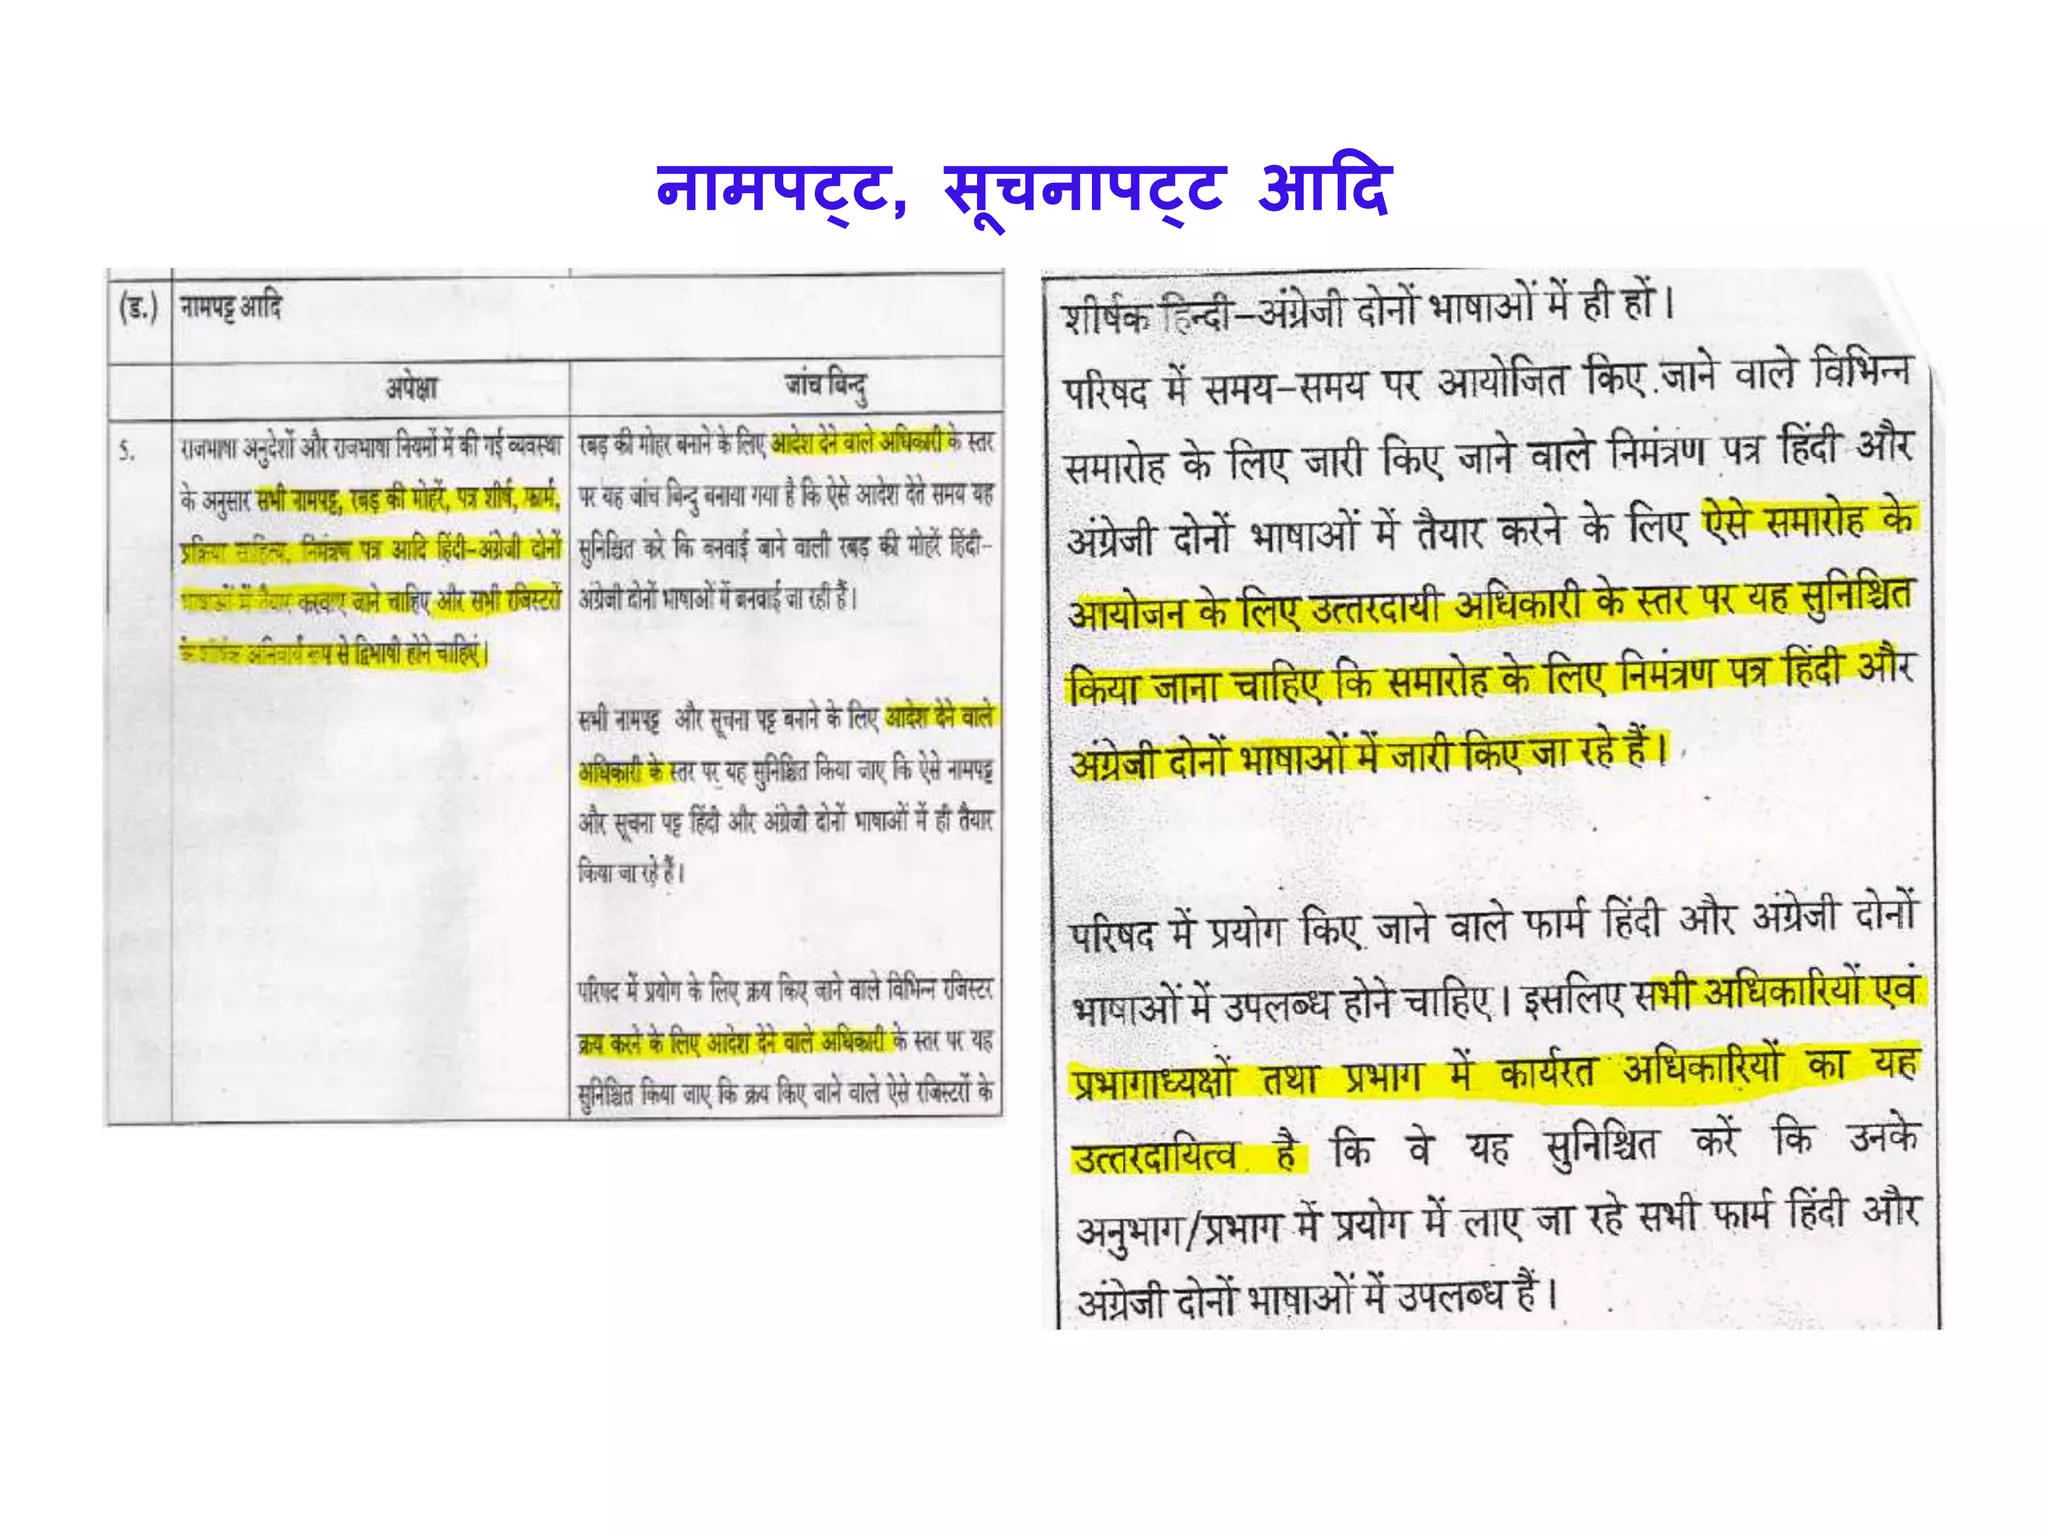 नामपट्ट, सूचनापट्ट आदि
(ड.) नामपट्ट आदि
अपेक्षा
जांच बिन्दु
5.
राजभाषा अनुदेशों और राजभाषा नियमों में की गई व्यवस्था
के अनुसार सभी नामपट्ट, रबड़ की मोहरें, पत्र शीर्ष, फार्म,
प्रक्रिया साहित्य, निमंत्रण पत्र आदि हिंदी-अंग्रेजी दोनों
भाषाओं में तैयार करवाए जाने चाहिए और सभी रजिस्टरों
के शीर्षक अनिवार्य रूप से द्विभाषी होने चाहिएं।
रबड़ की मोहर बनाने के लिए आदेश देने वाले अधिकारी के स्तर
पर यह जांच बिन्दु बनाया गया है कि ऐसे आदेश देते समय यह
सुनिश्चित करे कि बनवाई जाने वाली रबड़ की मोहरें हिंदी-
अंग्रेजी दोनों भाषाओं में बनवाई जा रही हैं।
सभी नामपट्ट और सूचना पट्ट बनाने के लिए आदेश देने वाले
अधिकारी के स्तर पर यह सुनिश्चित किया जाए कि ऐसे नामपट्ट
और सूचना पट्ट हिंदी और अंग्रेजी दोनों भाषाओं में ही तैयार
किया जा रहे हैं।
परिषद में प्रयोग के लिए क्रय किए जाने वाले विभिन्न रजिस्टर
क्रय करने के लिए आदेश देने वाले अधिकारी के स्तर पर यह
सुनिश्चित किया जाए कि क्रय किए जाने वाले ऐसे रजिस्टरों के
शीर्षक हिन्दी-अंग्रेजी दोनों भाषाओं में ही हों।
परिषद में समय-समय पर आयोजित किए जाने वाले विभिन्न
समारोह के लिए जारी किए जाने वाले निमंत्रण पत्र हिंदी और
अंग्रेजी दोनों भाषाओं में तैयार करने के लिए ऐसे समारोह के
आयोजन के लिए उत्तरदायी अधिकारी के स्तर पर यह सुनिश्चित
किया जाना चाहिए कि समारोह के लिए निमंत्रण पत्र हिंदी और
अंग्रेजी दोनों भाषाओं में जारी किए जा रहे हैं।
परिषद में प्रयोग किए जाने वाले फार्म हिंदी और अंग्रेजी दोनों
भाषाओं में उपलब्ध होने चाहिए। इसलिए सभी अधिकारियों एवं
प्रभागाध्यक्षों तथा प्रभाग में कार्यरत अधिकारियों का यह
उत्तरदायित्व है कि वे यह सुनिश्चित करें कि उनके
अनुभाग/प्रभाग में प्रयोग में लाए जा रहे सभी फार्म हिंदी और
अंग्रेजी दोनों भाषाओं में उपलब्ध हैं।